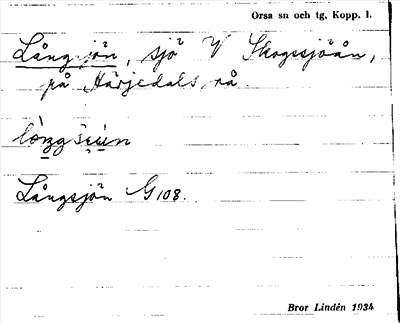 Orsa sn och tg, Kopp. l.
Långsjön, sjö V Skogssjöån,
på Härjedals rå.
Långsjön G108.
Bror Lindén 1934